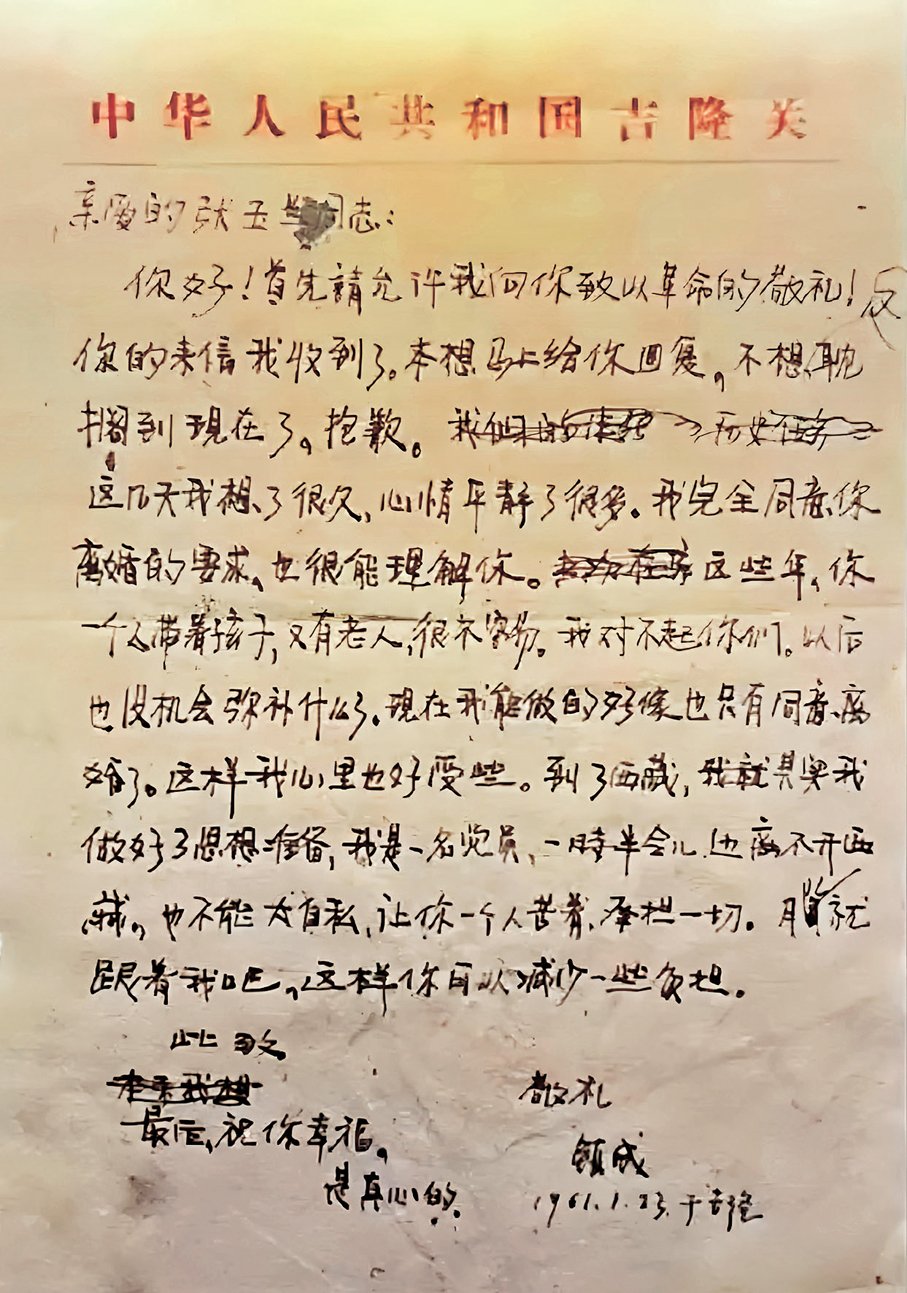 中华人民共和国吉隆关
亲爱的张玉兰同志：
你好！首先請允许我向你致以革命的敬礼！
你的来信我收到了。本想马上给你回复，不想耽
搁到现在了，抱歉。
这几天我想了很久，心情平静了很多。我完全同意你
离婚的要求，也很能理解你。这些年，你
一个人带着孩子，又有老人，很不容易。我对不起你们。以后
也没机会弥补什么了。现在我能做的好像也只有同意离
婚了。这样我心里也好受些。到了西藏，我就
做好了思想准备，我是一名党员，一時半会儿也离不开西
藏。也不能太自私，让你一个人苦着，承担一切。就
跟着我吧，这样你可以减少一些负担。
此致
敬礼
最后，祝你幸福。
是真心的。
镇成
1961.1.23.于吉隆